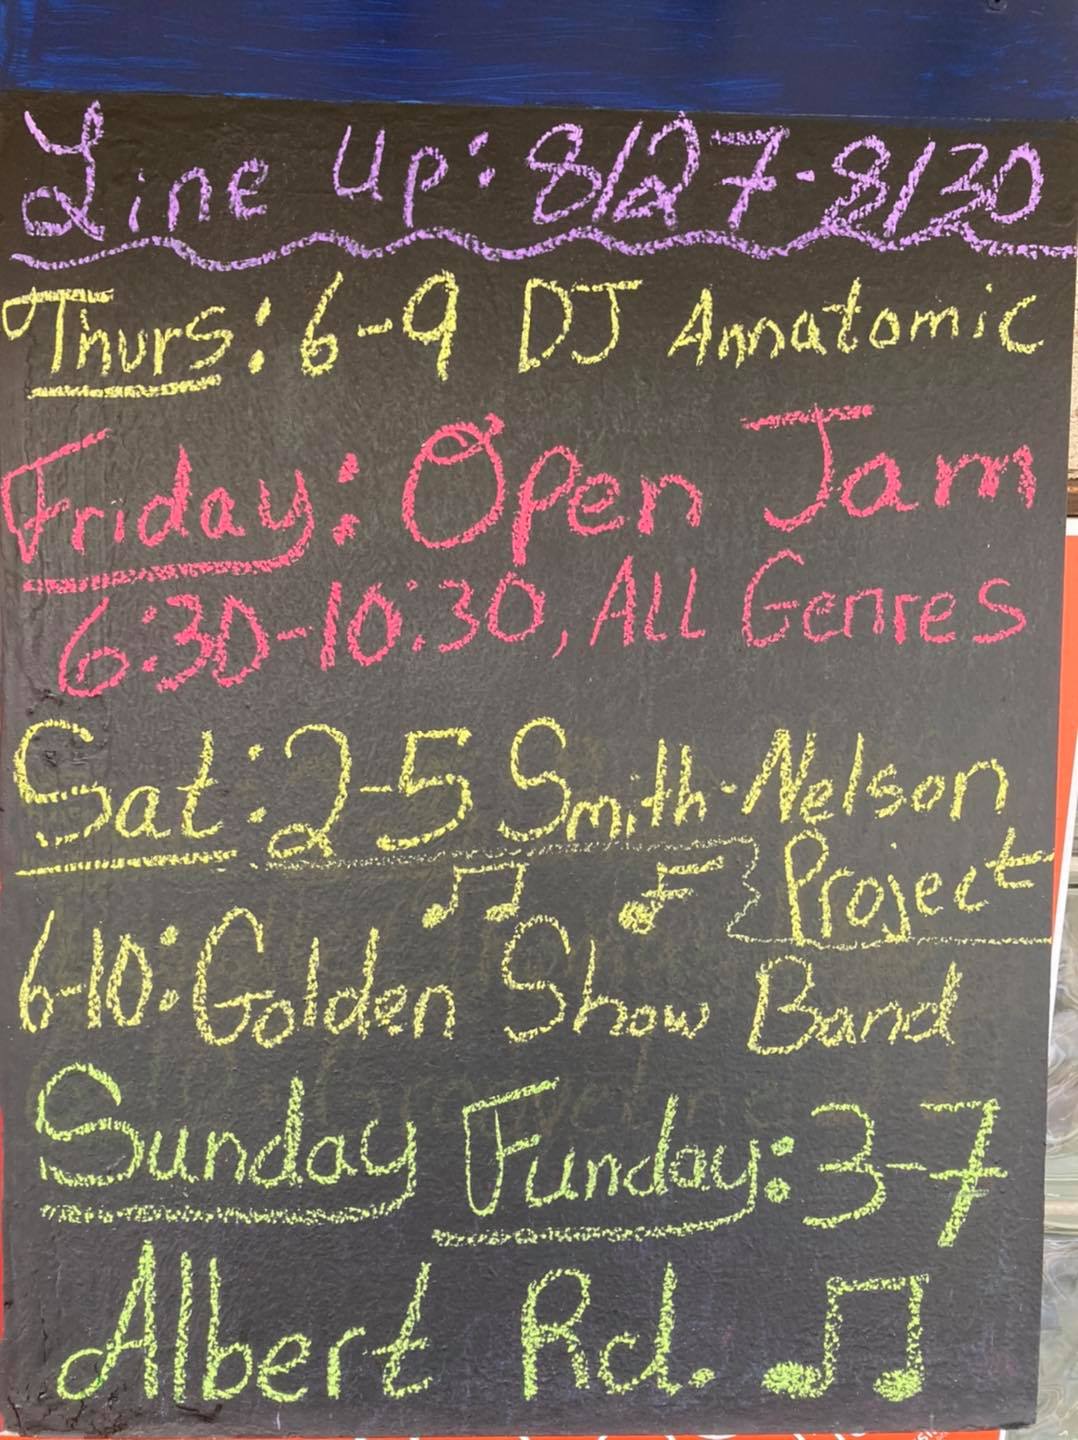 Line Up: 8/27-8/30
Thurs: 6-9 DJ Annatomic
Friday: Open Jam
6:30-10:30, All Genres
Sat: 2-5 Smith-Nelson
Project
6-10: Golden Show Band
Sunday Funday: 3-7
Albert Rd.